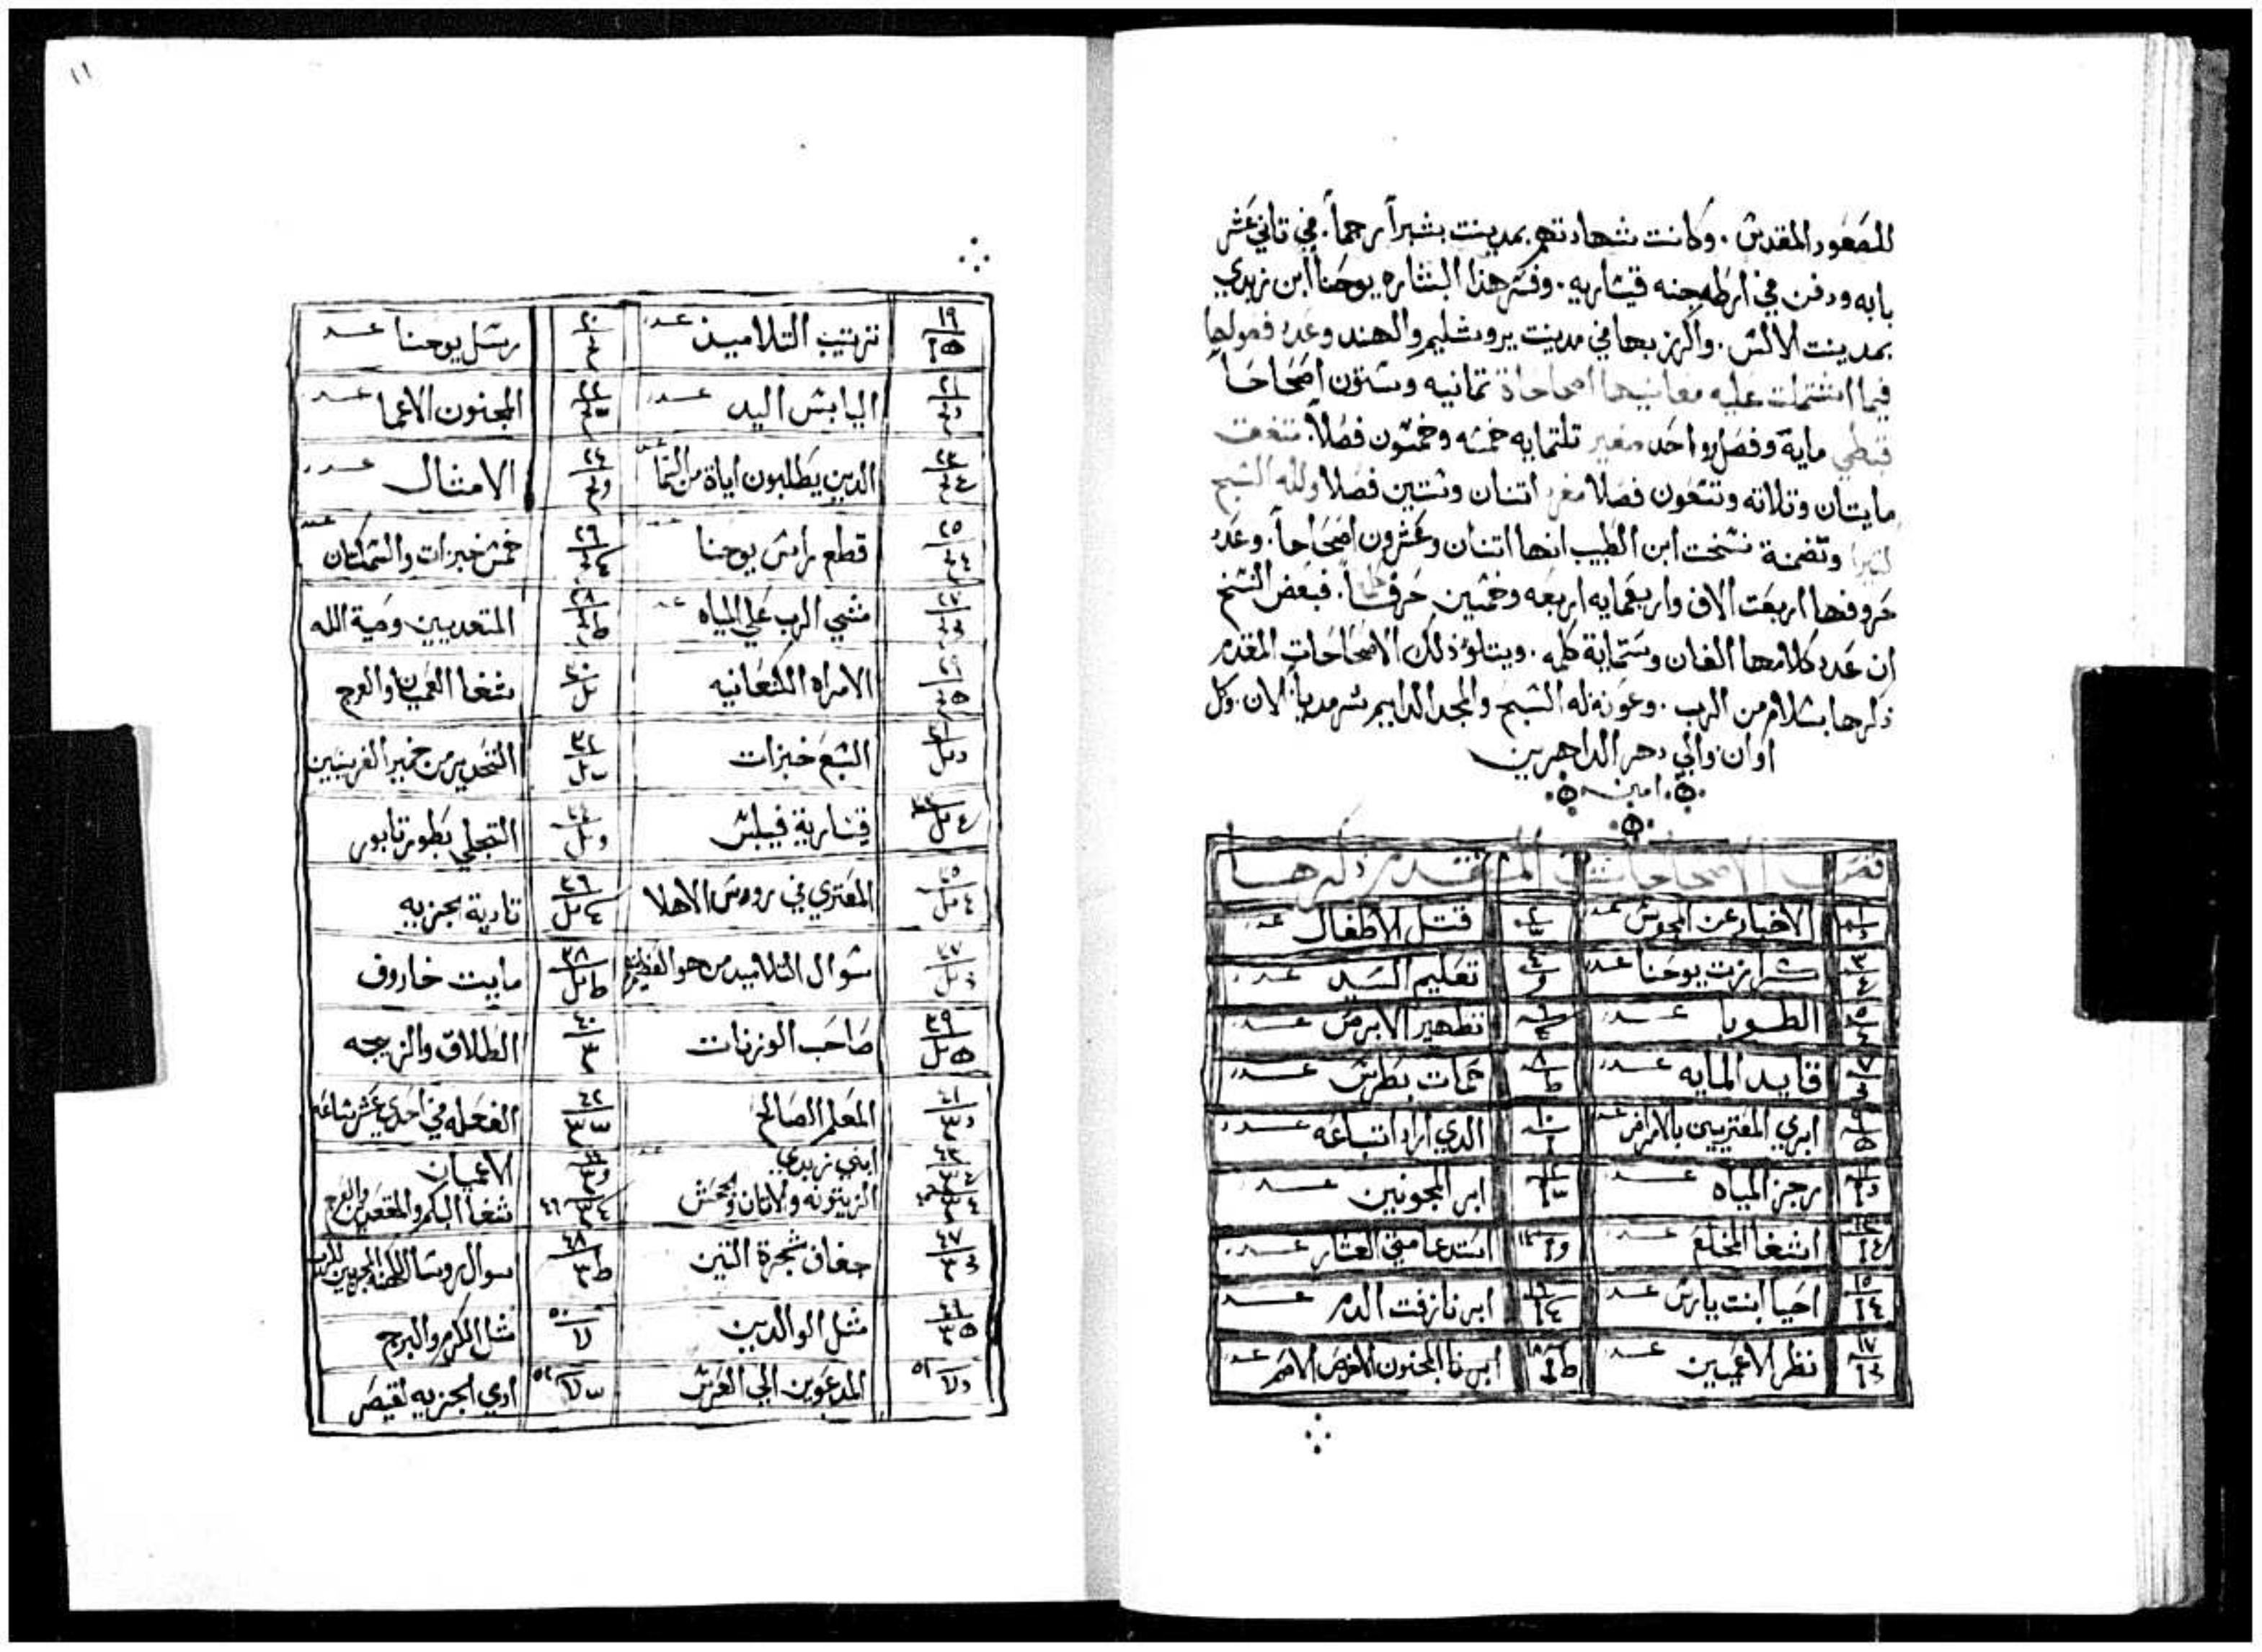 للصعود المقدس . وكانت شهادتهم بمدينت بشبرا رجماً . في تاني عشر
بابه ودفن في ارطاجنه قيساريه . وفسر هذا البشاره يوحنا ابن زبدي
بمدينت الالس . واكرز بها في مدينت يروشليم والهند وعدد فصولها
فيما اشتملت عليه معانيها اصحاحاة تمانيه وستون اصحاحاً
قبطي ماية وفصل واحد صغير تلتمايه خمسه وخمسون فصلاً . تتفق
مايتان وتلاته وتسعون فصلا مفرد اتنان وستين فصلا ولله السبح
كتيرا وتضمنة نسخت ابن الطيب انها اتنان وعشرون اصحاحاً . وعدد
حروفها اربعت الاف واربعمايه اربعه وخمسين حرفاً . فبعض النسخ
ان عدد كلامها الفان وستماية كلمه . ويتلو ذلك الاصحاحات المقدم
ذكرها بسلام من الرب . وعونه له السبح والمجد الدايم سرمدياً الان . وكل
اوان والي دهر الداهرين
امين
فصـ الاصحاحات المتقدم ذكرها
١ الاخبار عن المجوس عدد ٢ قتل الاطفال عدد
٣ كرازت يوحنا عدد ٤ تعليم السيد عدد
٥ الطوبا عدد ٦ تطهير الابرص عدد
٧ قايد المايه عدد ٨ حمات بطرس عدد
٩ ابري المعتريين بالامراض عدد ١٠ الدي اراد اتباعه عدد
١١ رجز المياه عدد ١٢ ابر المجونين عدد
١٣ اشفا المخلع عدد ١٤ استدعا متي العشار عدد
١٥ احيا ابنت يارس عدد ١٦ ابر نازفت الدم عدد
١٧ نظر الاعميين عدد ١٨ ابرنا المجنون الاخرص الاصم عدد
١١
١٩ ترتيب التلاميذ عدد ٢٠ رسل يوحنا عدد
٢١ اليابس اليد عدد ٢٢ المجنون الاعما عدد
٢٣ الدين يطلبون اياة من السما ٢٤ الامثال عدد
٢٥ قطع راس يوحنا ٢٦ خمس خبزات والسمكتان
٢٧ مشي الرب علي المياه ٢٨ المتعديين وصية الله
٢٩ الامراه الكنعانيه ٣٠ شفا العميان والعرج
٣١ السبع خبزات ٣٢ التحدير من خمير الفريسيين
٣٣ قيسارية فيلبس ٣٤ التجلي بطور تابور
٣٥ المعتري في رووس الاهلا ٣٦ تادية الجزيه
٣٧ سوال التلاميد من هو العظيم ٣٨ مايت خاروف
٣٩ صاحب الوزنات ٤٠ الطلاق والزيجه
٤١ المعلم الصالح ٤٢ الفعله في احدي عشر ساعه
ابني زبدي الاعميان
الزيتونه والاتان والجحش ٤٦ شفا البكم والمقعدين والعرج
٤٧ جفاف شجرة التين ٤٨ سوال روسا الكهنه
٤٩ مثل الوالدين ٥٠ مثل الكرم والبرج
٥١ المدعوين الي العرس ٥٢ ادي الجزيه لقيصر